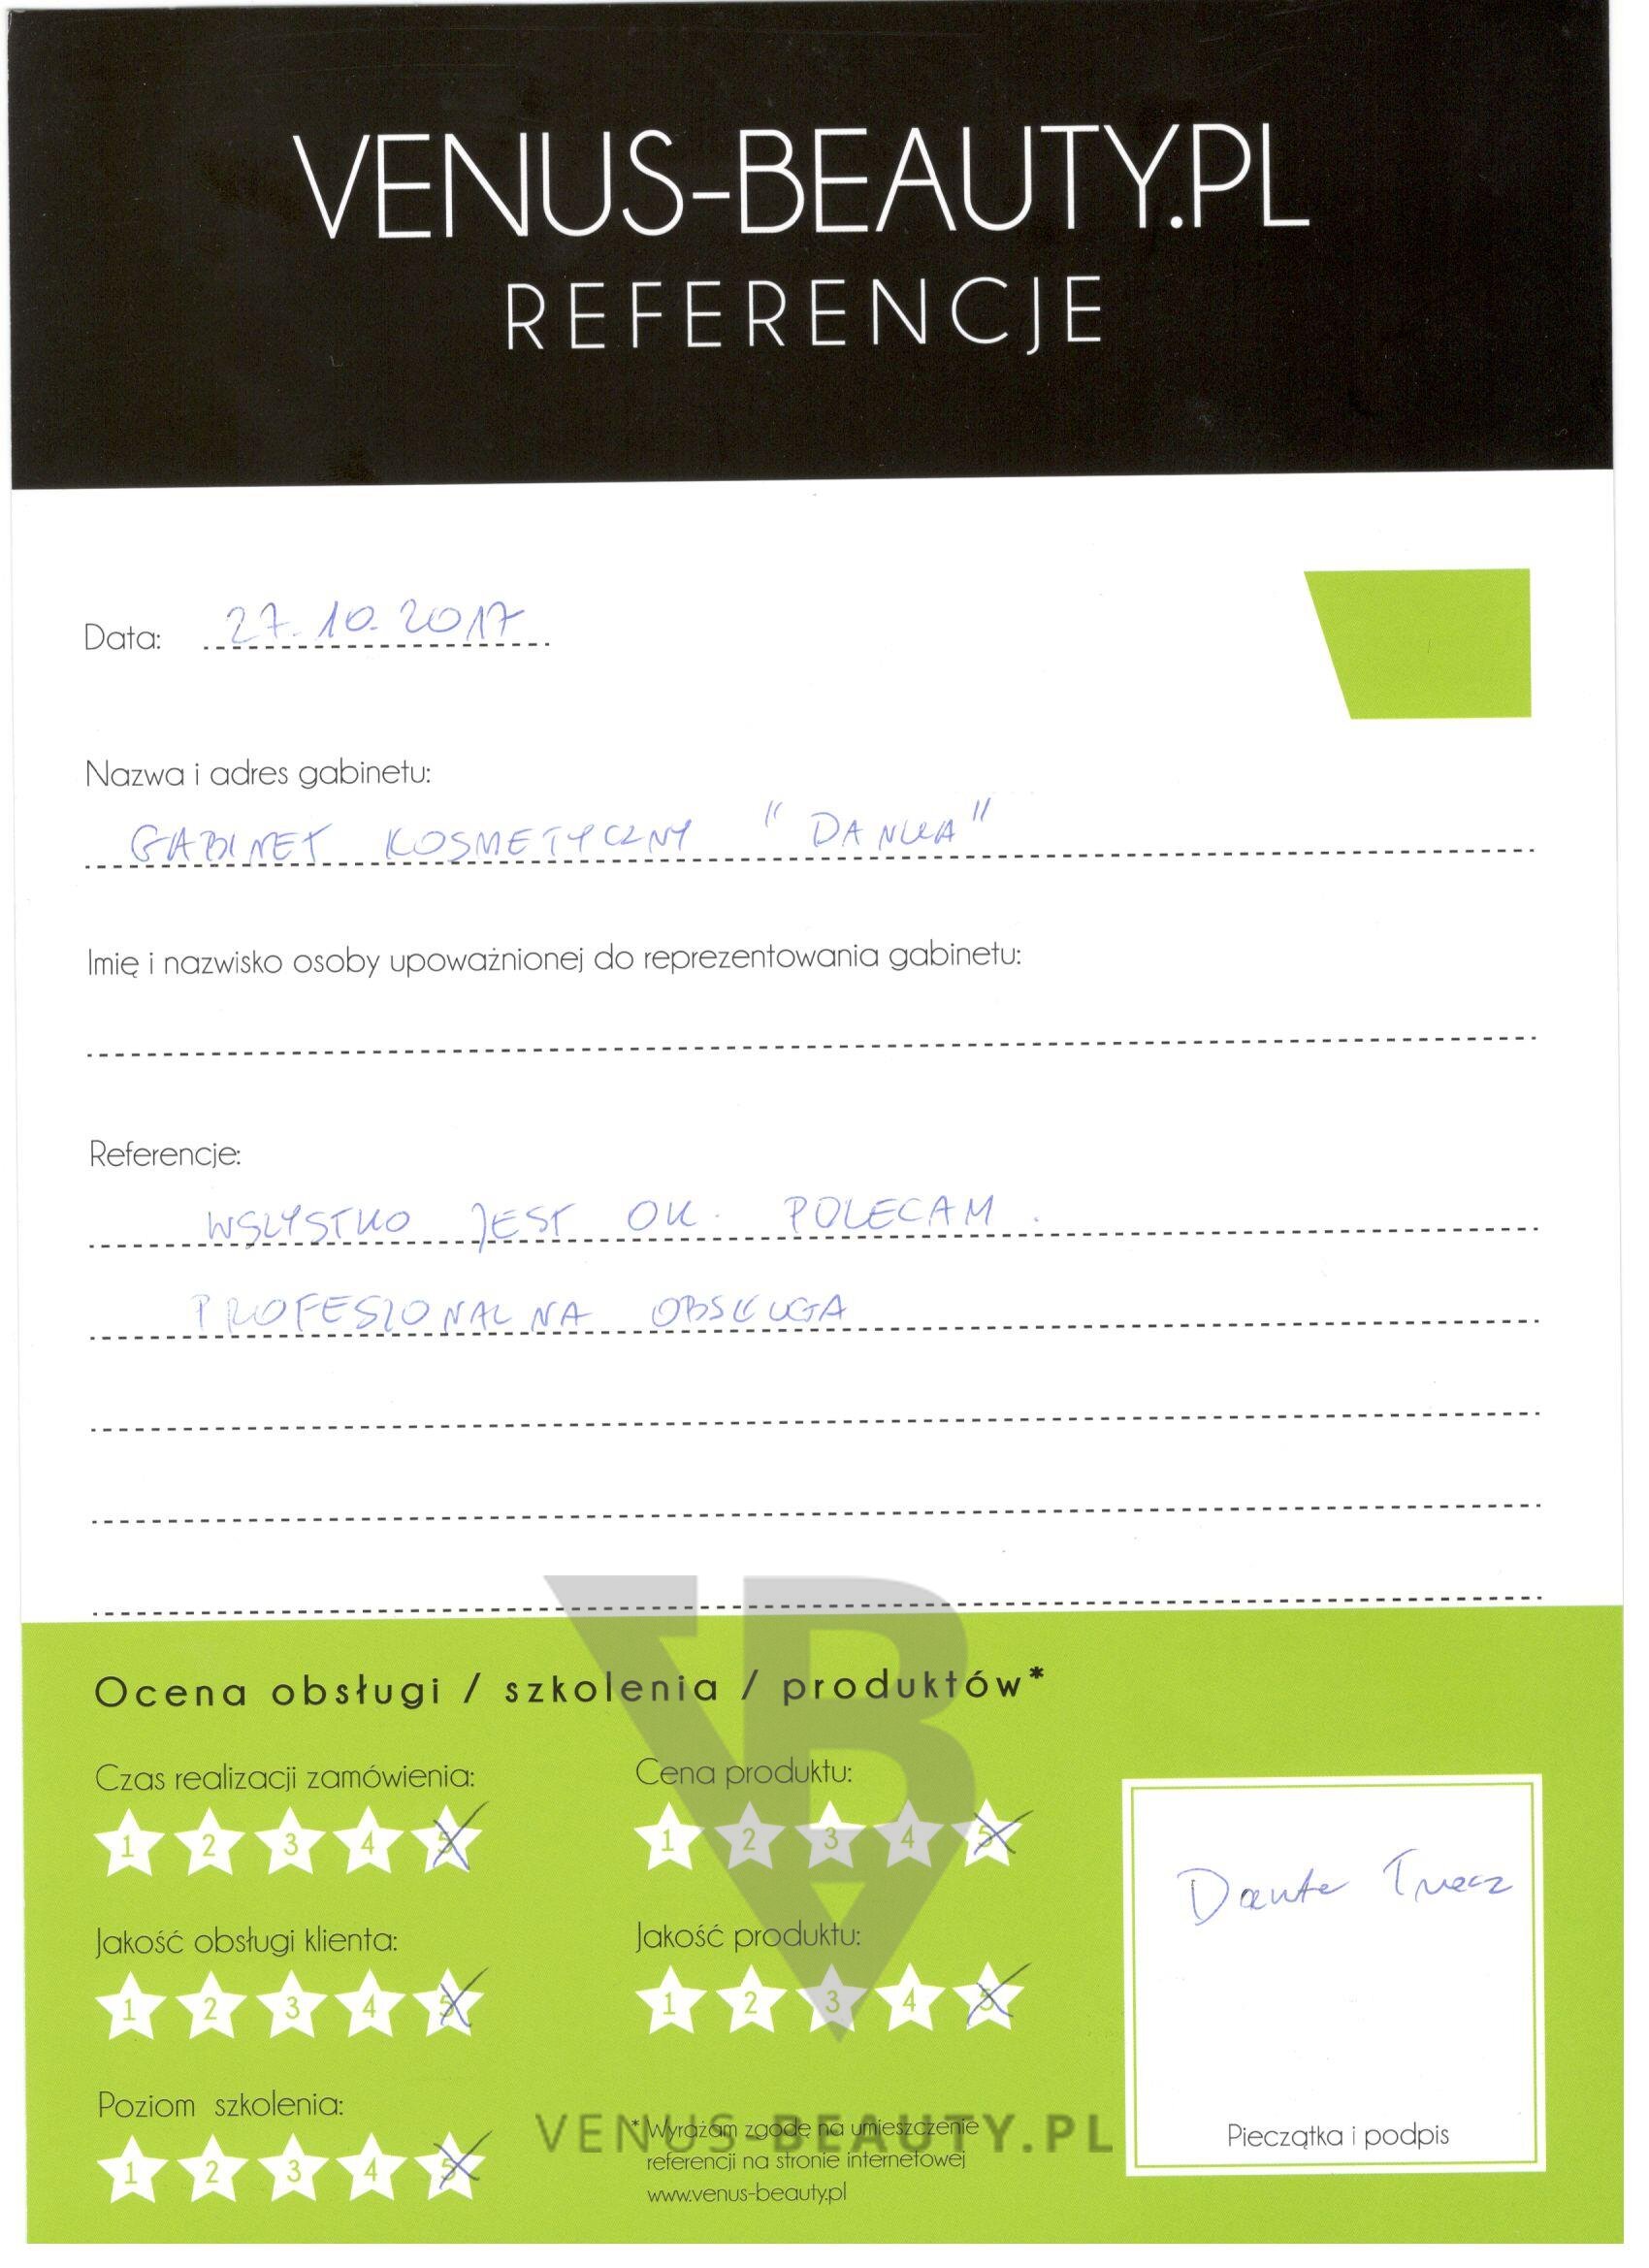 VENUS-BEAUTY.PL
REFERENCJE
Data: 27.10.2017
Nazwa i adres gabinetu:
GABINET KOSMETYCZNY "DANKA"
Imię i nazwisko osoby upoważnionej do reprezentowania gabinetu:
Referencje:
WSZYSTKO JEST OK. POLECAM.
PROFESIONALNA OBSŁUGA
Ocena obsługi / szkolenia / produktów*
Czas realizacji zamówienia:
1 2 3 4 5
Cena produktu:
1 2 3 4 5
Jakość obsługi klienta:
1 2 3 4 5
Jakość produktu:
1 2 3 4 5
Poziom szkolenia:
1 2 3 4 5
*Wyrażam zgodę na umieszczenie
referencji na stronie internetowej
www.venus-beauty.pl
Pieczątka i podpis
VB
VENUS-BEAUTY.PL